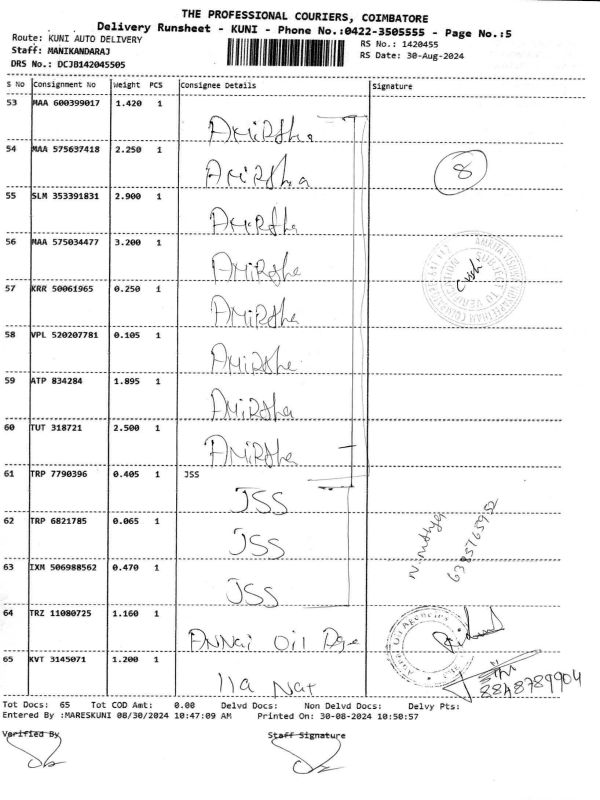 THE PROFESSIONAL COURIERS, COIMBATORE
Delivery Runsheet - KUNI - Phone No.:0422-3505555 - Page No.:5
Route: KUNI AUTO DELIVERY
Staff: MANIKANDARAJ
DRS No.: DCJB142045505
RS No.: 1420455
RS Date: 30-Aug-2024
S No Consignment No Weight PCS Consignee Details Signature
53 MAA 600399017 1.420 1
AMiRtha
54 MAA 575637418 2.250 1
AMiRtha
8
55 SLM 353391831 2.900 1
AMiRtha
56 MAA 575034477 3.200 1
AMiRtha
57 KRR 50061965 0.250 1
AMiRtha
58 VPL 520207781 0.105 1
AMiRtha
59 ATP 834284 1.895 1
AMiRtha
60 TUT 318721 2.500 1
AMiRtha
61 TRP 7790396 0.405 1 JSS
JSS
62 TRP 6821785 0.065 1
JSS
6385765952
63 IXM 506988562 0.470 1
JSS
64 TRZ 11080725 1.160 1
ANNai Oil Age
65 KVT 3145071 1.200 1
Ila Nat
8848789904
Tot Docs: 65 Tot COD Amt: 0.00 Delvd Docs: Non Delvd Docs: Delvy Pts:
Entered By :MARESKUNI 08/30/2024 10:47:09 AM Printed On: 30-08-2024 10:50:57
Verified By Staff Signature